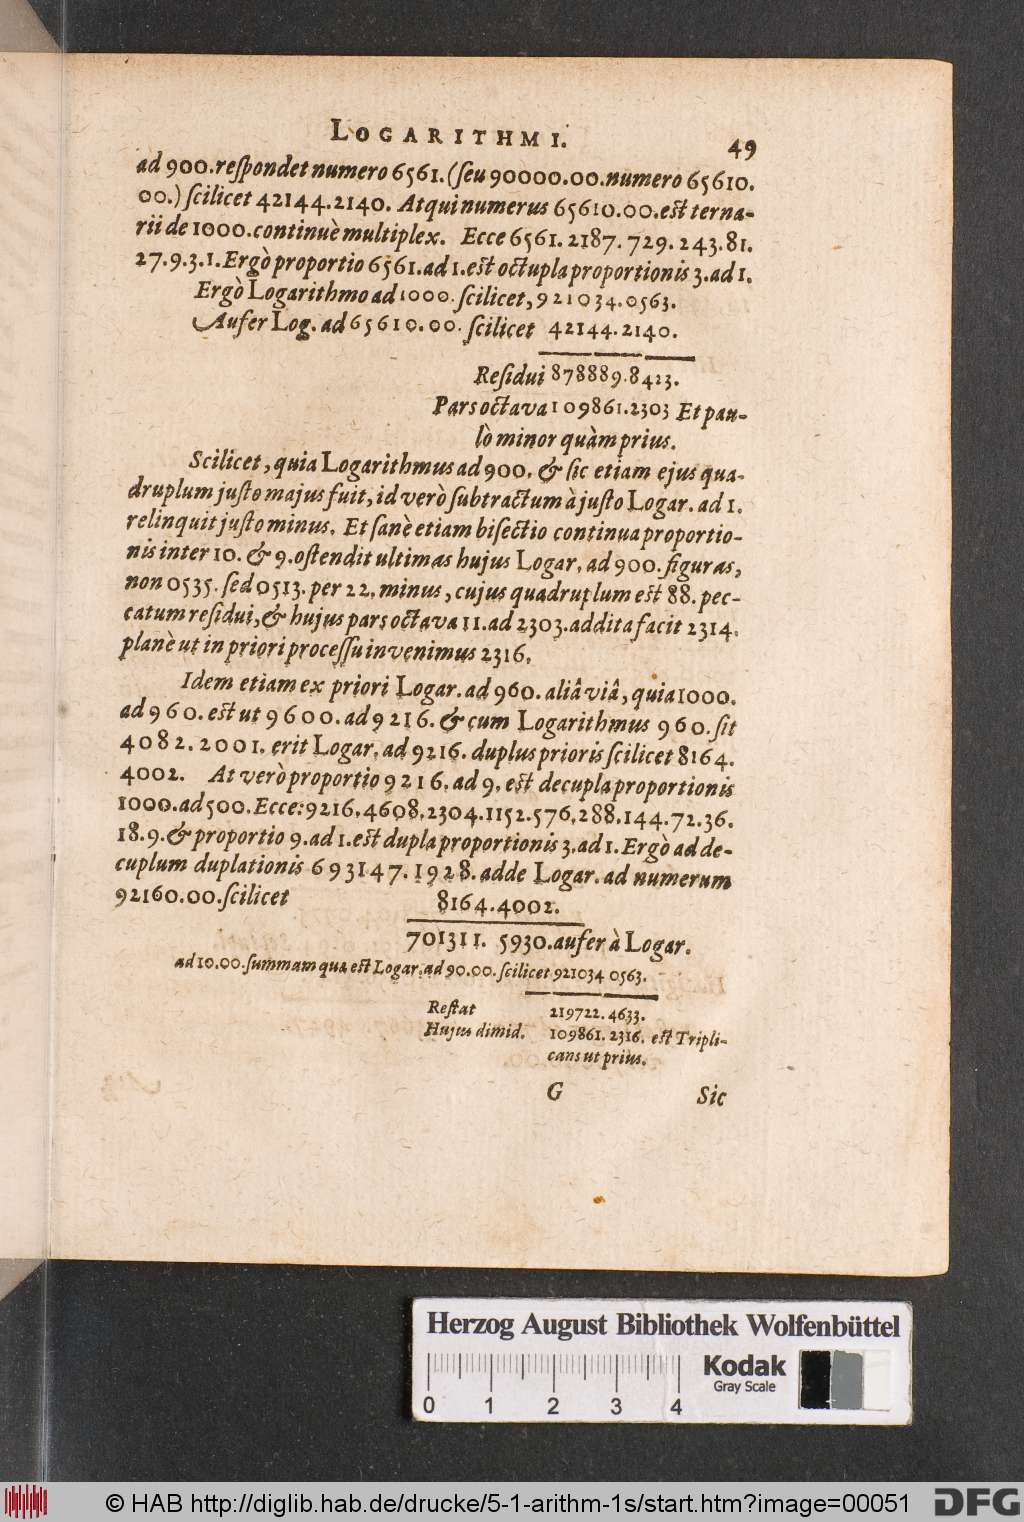 LOGARITHMI. 49
ad 900. reſpondet numero 6561. (ſeu 90000.00. numero 65610.
00.) ſcilicet 42144.2140. Atqui numerus 65610.00. eſt terna-
rii de 1000. continuè multiplex. Ecce 6561. 2187. 729. 243. 81.
27. 9. 3. 1. Ergò proportio 6561. ad 1. eſt octupla proportionis 3. ad 1.
Ergò Logarithmo ad 1000. ſcilicet, 921034.0563.
Aufer Log. ad 65610.00. ſcilicet 42144.2140.
Reſidui 878889.8423.
Pars octava 109861.2303 Et pau-
lò minor quàm prius.
Scilicet, quia Logarithmus ad 900. & ſic etiam ejus qua-
druplum juſto majus fuit, id verò ſubtractum à juſto Logar. ad 1.
relinquit juſto minus. Et ſanè etiam biſectio continua proportio-
nis inter 10. & 9. oſtendit ultimas hujus Logar. ad 900. figuras,
non 0535. ſed 0513. per 22. minus, cujus quadruplum eſt 88. pec-
catum reſidui, & hujus pars octava 11. ad 2303. addita facit 2314.
planè ut in priori proceſſu invenimus 2316.
Idem etiam ex priori Logar. ad 960. aliâ viâ, quia 1000.
ad 960. eſt ut 9600. ad 9216. & cum Logarithmus 960. ſit
4082.2001. erit Logar. ad 9216. duplus prioris ſcilicet 8164.
4002. At verò proportio 9216. ad 9. eſt decupla proportionis
1000. ad 500. Ecce: 9216. 4608. 2304. 1152. 576. 288. 144. 72. 36.
18. 9. & proportio 9. ad 1. eſt dupla proportionis 3. ad 1. Ergò ad de-
cuplum duplationis 693147.1928. adde Logar. ad numerum
92160.00. ſcilicet 8164.4002.
701311. 5930. aufer à Logar.
ad 10.00. ſummam quæ eſt Logar. ad 90.00. ſcilicet 921034 0563.
Reſtat 219722. 4633.
Hujus dimid. 109861. 2316. eſt Tripli-
cans ut prius.
G Sic
Herzog August Bibliothek Wolfenbüttel
Kodak
Gray Scale
0 1 2 3 4
© HAB http://diglib.hab.de/drucke/5-1-arithm-1s/start.htm?image=00051 DFG